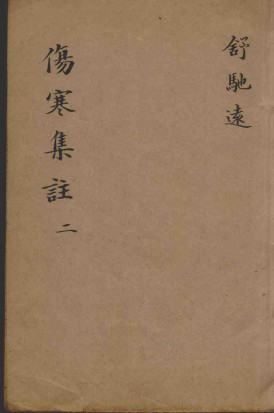 舒馳遠
傷寒集註 二